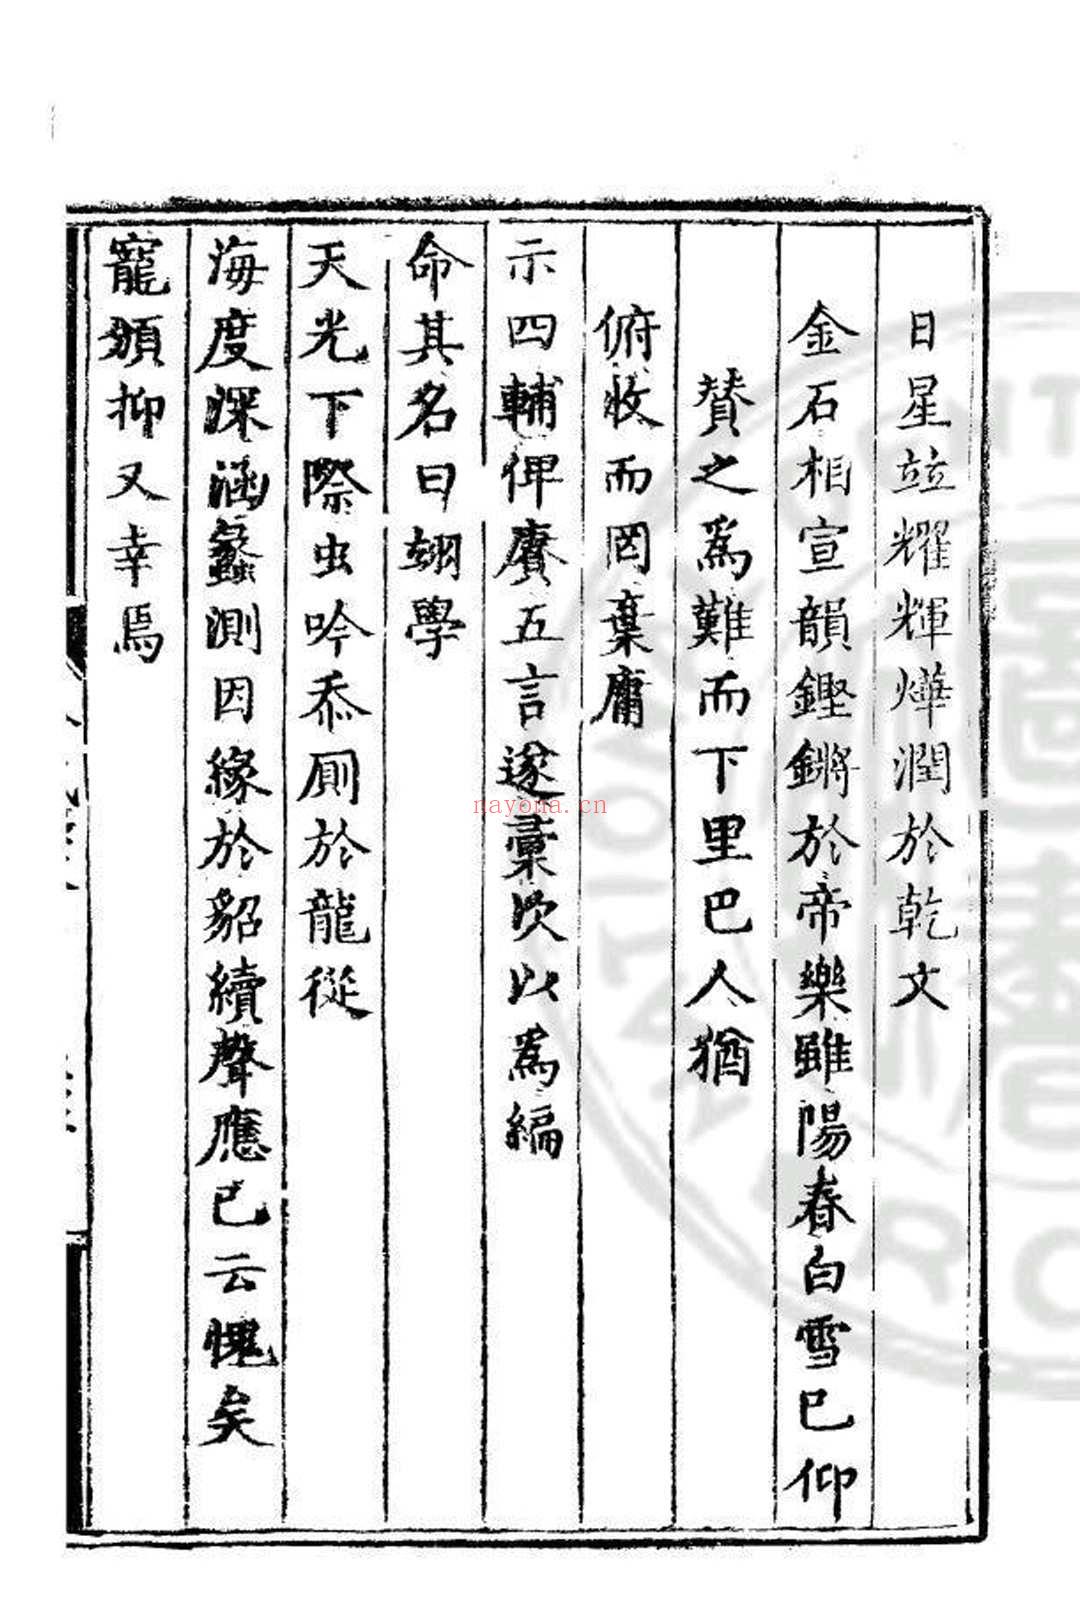 日星竝耀輝燁潤於乾文
金石相宣韻鏗鏘於帝樂雖陽春白雪已仰
贊之爲難而下里巴人猶
俯收而罔棄庸
示四輔俾賡五言遂彙次以爲編
命其名曰翊學
天光下際虫吟忝厠於龍從
海度深涵蠡測因緣於貂續聲應已云愧矣
寵頒抑又幸焉
nayona.cn